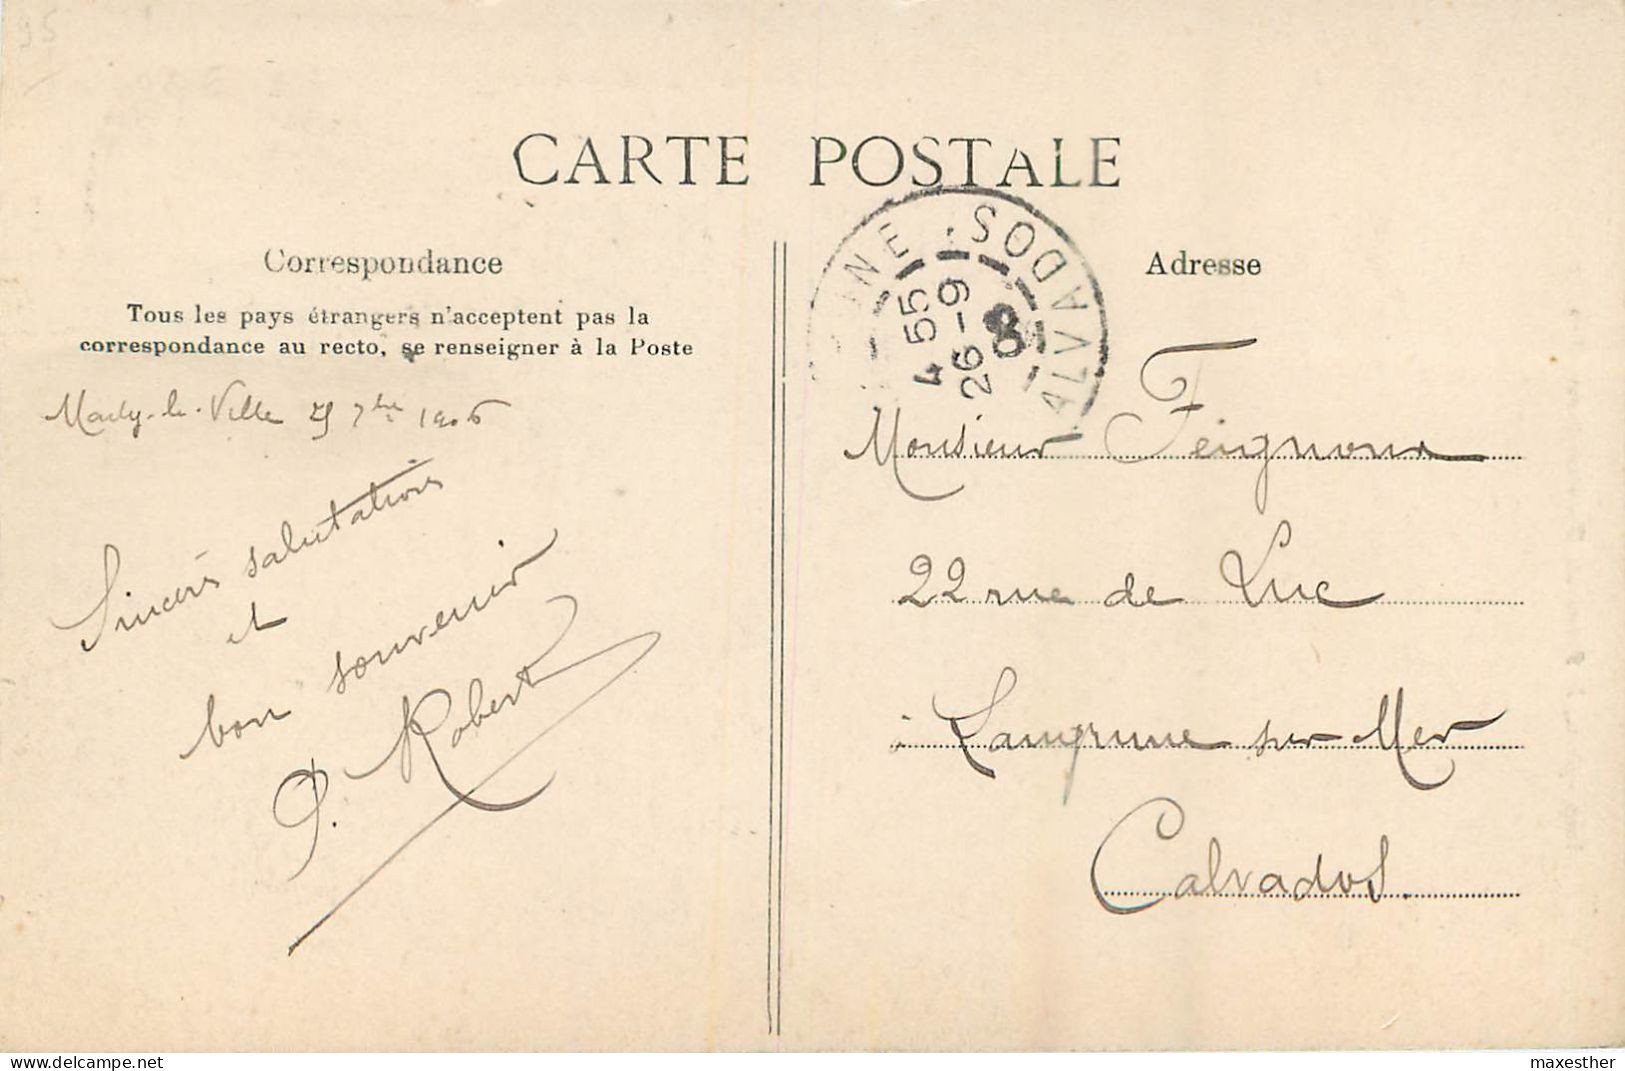 95
CARTE POSTALE
Correspondance
Tous les pays étrangers n'acceptent pas la
correspondance au recto, se renseigner à la Poste
Marly-la-Ville 25 7bre 1906
Sincères salutations
et
bon souvenir
P. Robert
NE . CALVADOS
4 55
26 - 9
Adresse
Monsieur Feignoux
22 rue de Luc
à Langrune sur Mer
Calvados.
maxesther